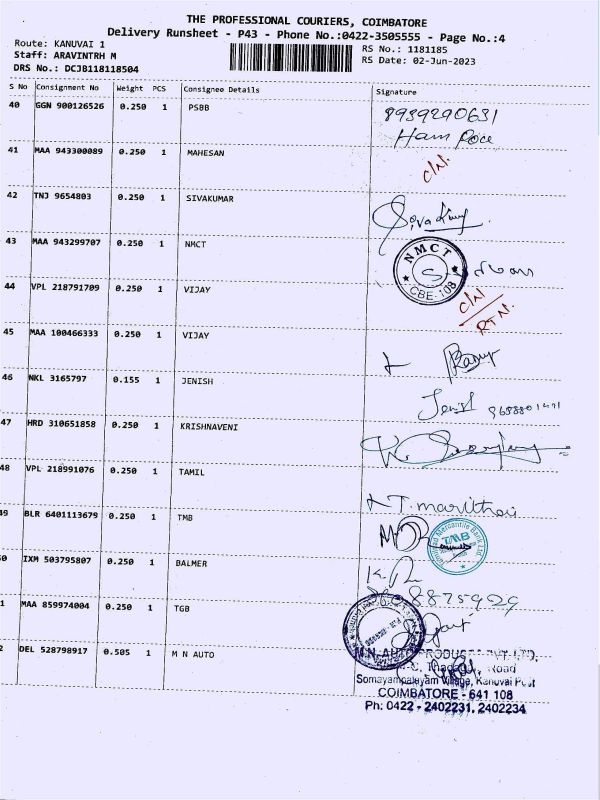 THE PROFESSIONAL COURIERS, COIMBATORE
Delivery Runsheet - P43 - Phone No.:0422-3505555 - Page No.:4
Route: KANUVAI 1
Staff: ARAVINTRH M
DRS No.: DCJB118118504
RS No.: 1181185
RS Date: 02-Jun-2023
S No Consignment No Weight PCS Consignee Details Signature
40 GGN 900126526 0.250 1 PSBB 8939290631
41 MAA 943300089 0.250 1 MAHESAN C/N.
42 TNJ 9654803 0.250 1 SIVAKUMAR
43 MAA 943299707 0.250 1 NMCT NMCT CBE-108
44 VPL 218791709 0.250 1 VIJAY C/N RTN.
45 MAA 100466333 0.250 1 VIJAY
46 NKL 3165797 0.155 1 JENISH Jenish
47 HRD 310651858 0.250 1 KRISHNAVENI
48 VPL 218991076 0.250 1 TAMIL T. maruthai
49 BLR 6401113679 0.250 1 TMB TMB Tamilnad Mercantile Bank Ltd.
50 IXM 503795807 0.250 1 BALMER
1 MAA 859974004 0.250 1 TGB
2 DEL 528798917 0.505 1 M N AUTO
M.N. AUTO PRODUCTS PVT. LTD.
Thadagam Road
Somayampalayam Village, Kanuvai Post
COIMBATORE - 641 108
Ph: 0422 - 2402231, 2402234